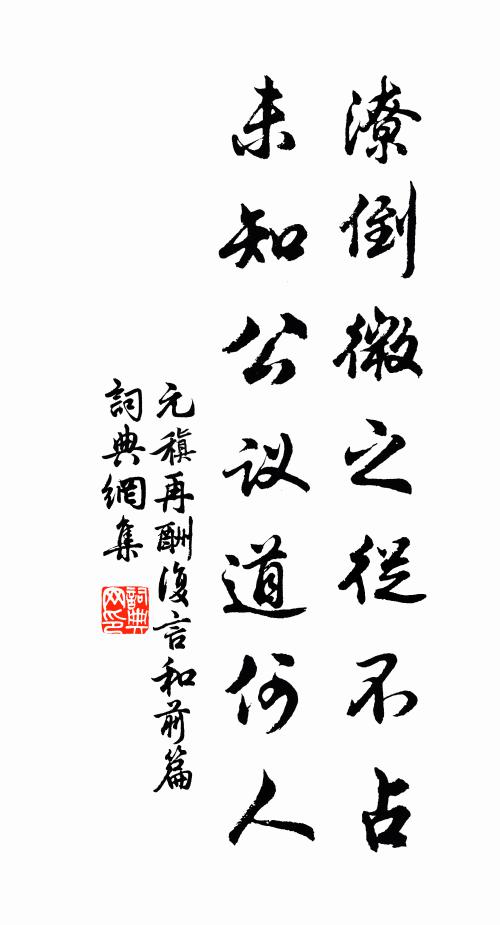 潦倒微之從不占
未知公议道何人
元稹再酬復言和前篇
詞典網集
詞典网印